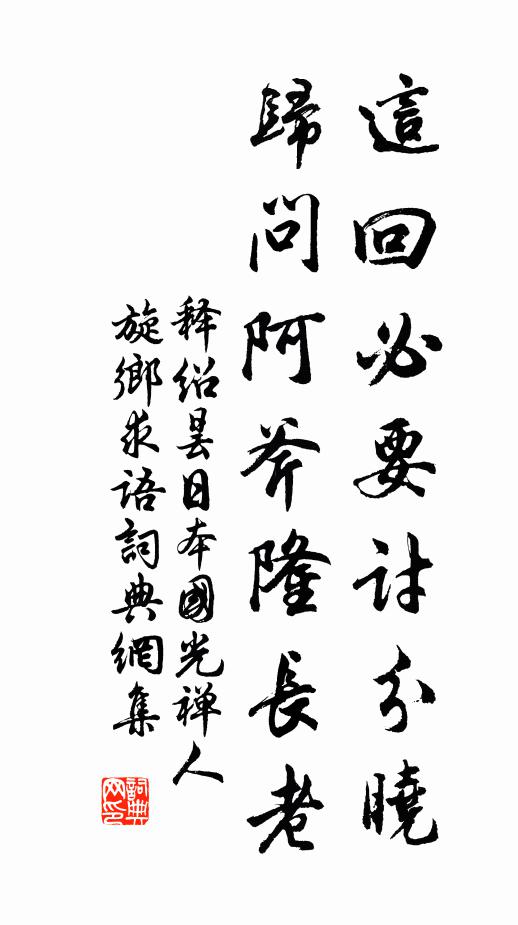 這回必要討分曉
歸問阿斧隆長老
释绍曇日本國光禅人
旋鄉求語詞典網集
詞典网印